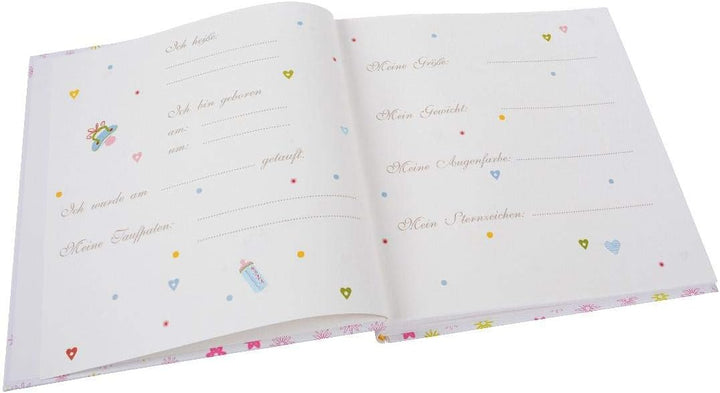 Ich heiße:
Ich bin geboren
am:
um:
Ich wurde am getauft.
Meine Taufpaten:
Meine Größe:
Mein Gewicht:
Meine Augenfarbe:
Mein Sternzeichen: